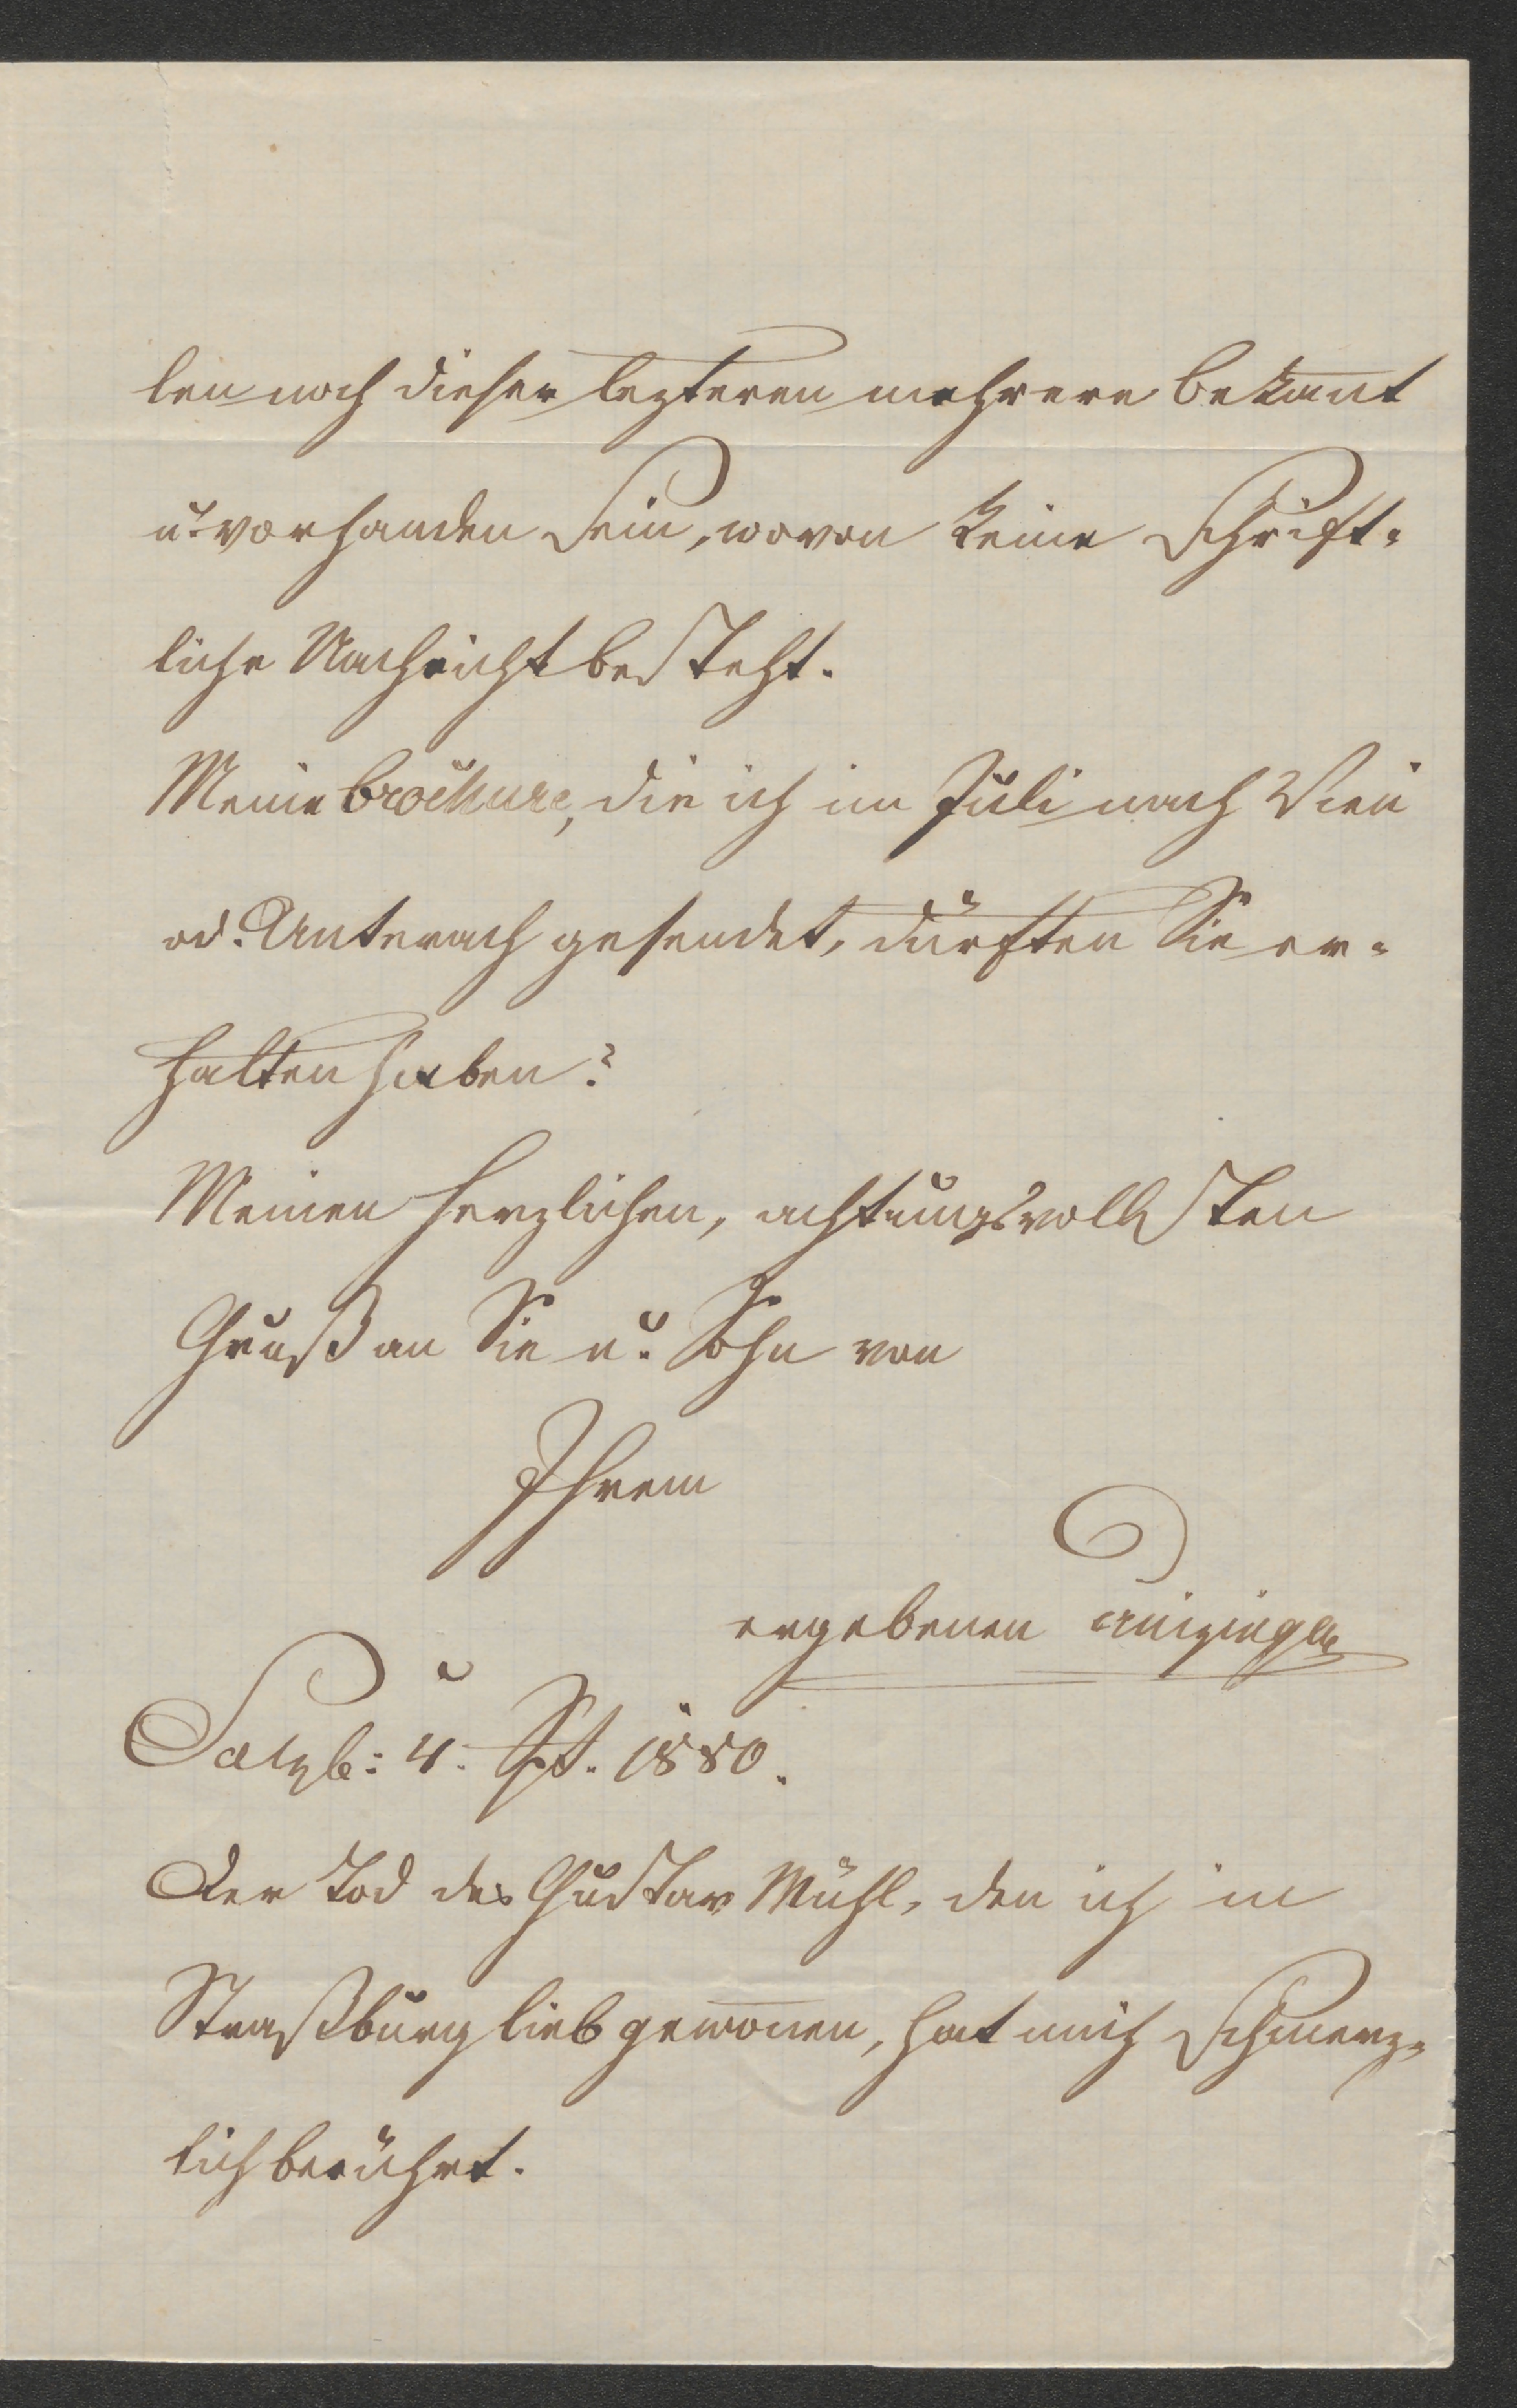 len noch dieser lezteren mehrere bekannt
u. vorhanden sein, wovon keine schrift-
liche Nachricht besteht.
Meine brochure, die ich im Juli nach Wien
od. Unterach gesendet, dürften Sie er-
halten haben?
Meinen herzlichen, achtungsvollsten
Gruß an Sie u. Sohn von
Ihrem
ergebenen
Salzb: 4. Spt. 1880.
Der Tod des Gustav Mühl, den ich in
Straßburg lieb gewonnen, hat mich schmerz-
lich berührt.